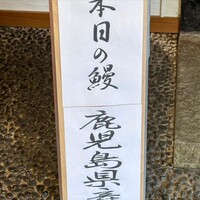 本日の鰻
鹿児島県産